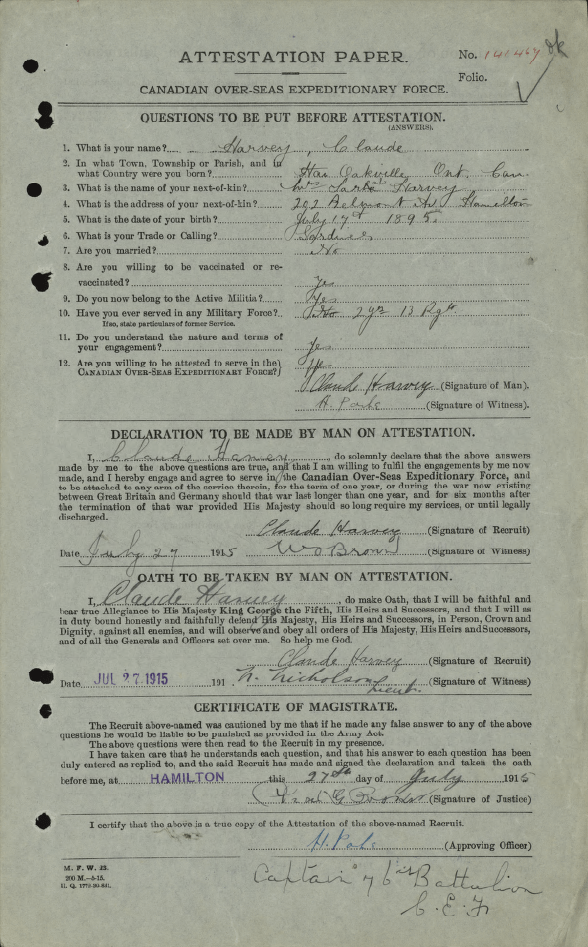 ATTESTATION PAPER.
No. 141467
Folio.
CANADIAN OVER-SEAS EXPEDITIONARY FORCE.
QUESTIONS TO BE PUT BEFORE ATTESTATION.
(ANSWERS).
1. What is your name? Harvey, Claude
2. In what Town, Township or Parish, and in
what Country were you born? Oakville Ont. Can.
3. What is the name of your next-of-kin? Harvey
4. What is the address of your next-of-kin? 202 Belmont Av. Hamilton
5. What is the date of your birth? July 17th 1895.
6. What is your Trade or Calling?
7. Are you married? No
8. Are you willing to be vaccinated or re-
vaccinated? Yes
9. Do you now belong to the Active Militia? Yes
10. Have you ever served in any Military Force? 2 yrs 13 Rgt.
If so, state particulars of former Service.
11. Do you understand the nature and terms of
your engagement? Yes
12. Are you willing to be attested to serve in the
CANADIAN OVER-SEAS EXPEDITIONARY FORCE? Yes
Claude Harvey (Signature of Man).
(Signature of Witness).
DECLARATION TO BE MADE BY MAN ON ATTESTATION.
I, Claude Harvey, do solemnly declare that the above answers
made by me to the above questions are true, and that I am willing to fulfil the engagements by me now
made, and I hereby engage and agree to serve in the Canadian Over-Seas Expeditionary Force, and
to be attached to any arm of the service therein, for the term of one year, or during the war now existing
between Great Britain and Germany should that war last longer than one year, and for six months after
the termination of that war provided His Majesty should so long require my services, or until legally
discharged.
Claude Harvey (Signature of Recruit)
Date July 27 1915 W S Brown (Signature of Witness)
OATH TO BE TAKEN BY MAN ON ATTESTATION.
I, Claude Harvey, do make Oath, that I will be faithful and
bear true Allegiance to His Majesty King George the Fifth, His Heirs and Successors, and that I will as
in duty bound honestly and faithfully defend His Majesty, His Heirs and Successors, in Person, Crown and
Dignity, against all enemies, and will observe and obey all orders of His Majesty, His Heirs and Successors,
and of all the Generals and Officers set over me. So help me God.
Claude Harvey (Signature of Recruit)
Date JUL 27 1915 191 N. Nicholson Lieut. (Signature of Witness)
CERTIFICATE OF MAGISTRATE.
The Recruit above-named was cautioned by me that if he made any false answer to any of the above
questions he would be liable to be punished as provided in the Army Act.
The above questions were then read to the Recruit in my presence.
I have taken care that he understands each question, and that his answer to each question has been
duly entered as replied to, and the said Recruit has made and signed the declaration and taken the oath
before me, at HAMILTON this 27th day of July 1915
(Signature of Justice)
I certify that the above is a true copy of the Attestation of the above-named Recruit.
(Approving Officer)
M. F. W. 23.
200 M.-5-15.
H. Q. 1772-39-831.
Captain 76th Battalion
C. E. F.